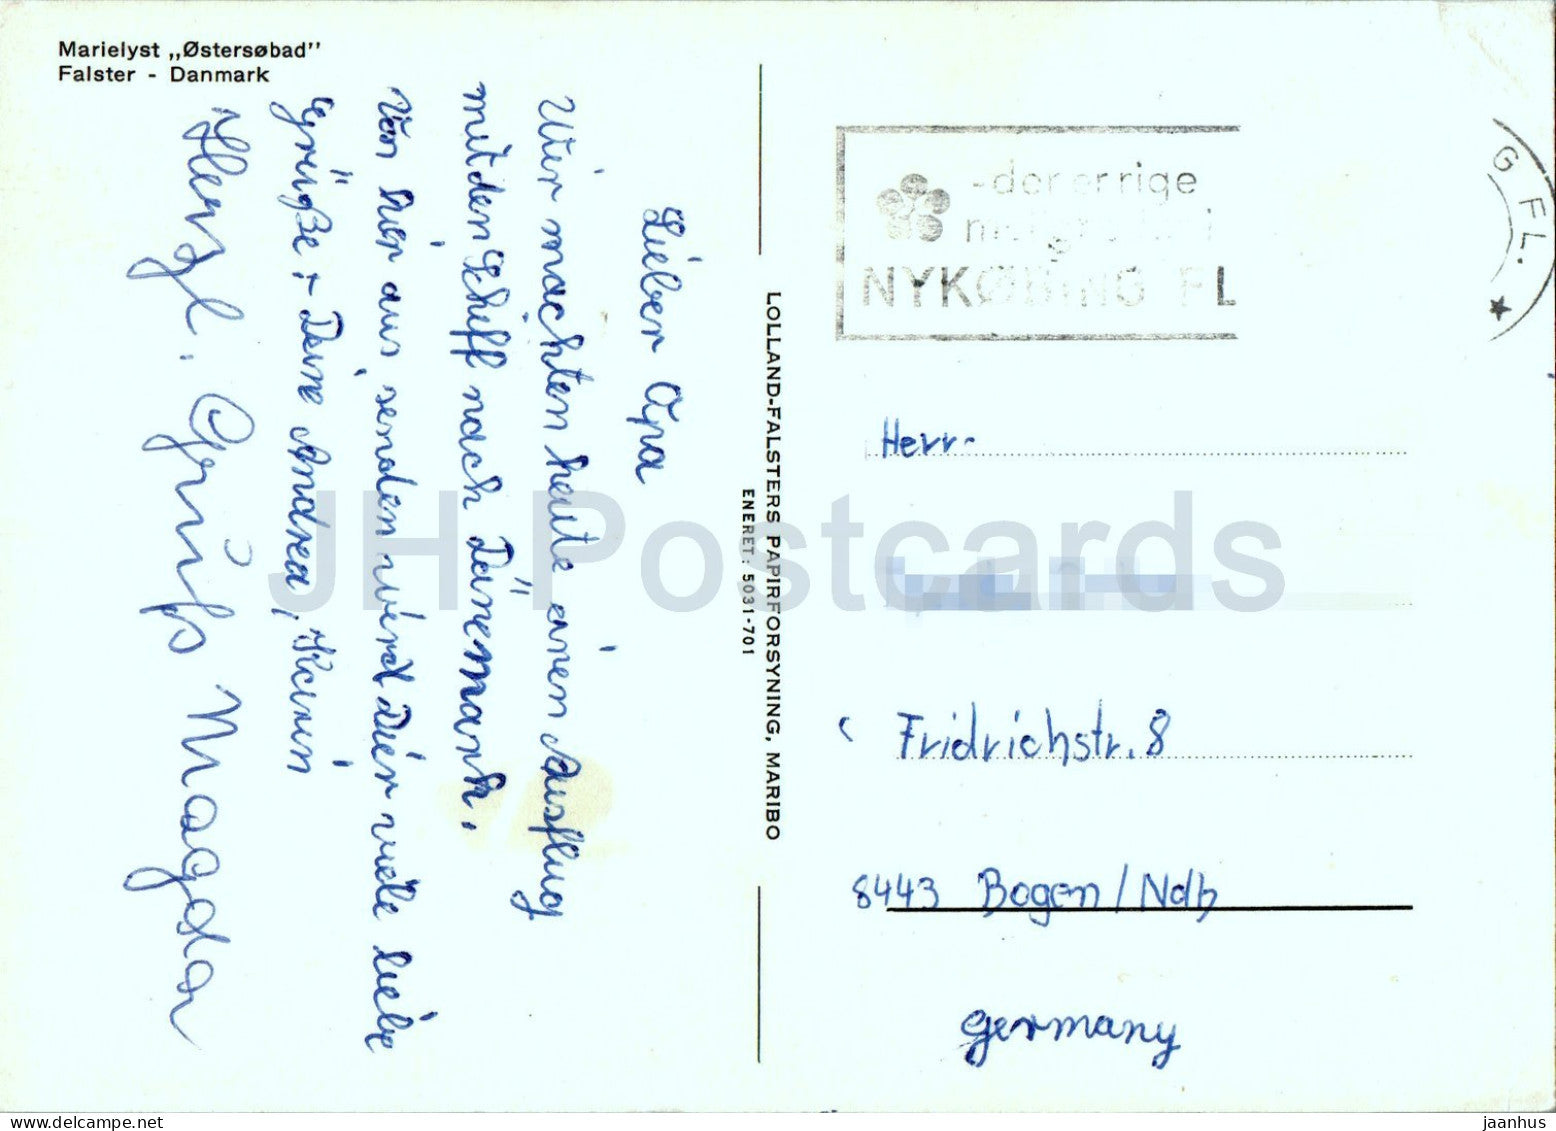 Marielyst „Østersøbad”
Falster - Danmark
Lieber Opa
Wir machten heute einen Ausflug
mit den Schiff nach Dänemark.
Von hier aus senden wir Dir viele liebe
Grüße + Deine Andrea, Karin
Herzl. Grüß Magda
LOLLAND-FALSTERS PAPIRFORSYNING, MARIBO
ENERET: 5031-701
- der er rige
NYKØBING FL
G FL.
Herr
Fridrichstr. 8
8443 Bogen/Ndb
Germany
JH Postcards
jaanhus